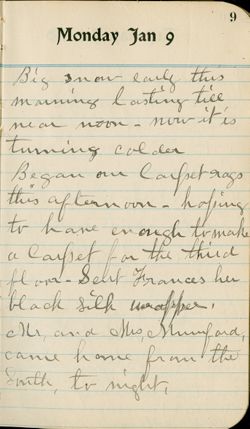 9
Monday Jan 9
Big snow early this
morning lasting till
near noon - now it is
turning colder
Began our Carpet rags
this afternoon - hoping
to have enough to make
a Carpet for the third
floor - Sent Frances her
black silk wrapper.
Mr. and Mrs. Mumford,
came home from the
South, to night,